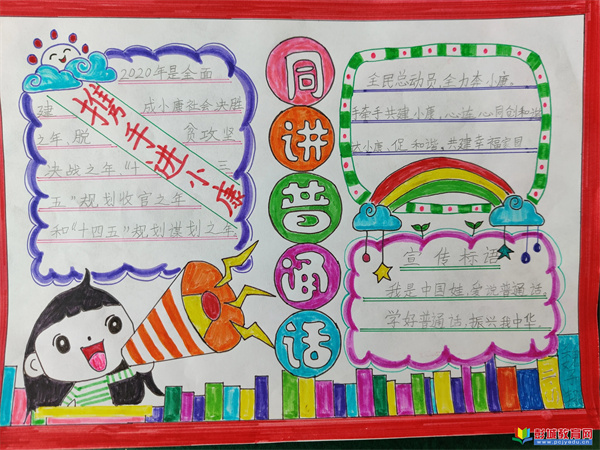 同讲普通话
携手进小康
2020年是全面
建 成小康社会决胜
之年,脱 贫攻坚
决战之年,“十 三
五”规划收官之年
和“十四五”规划谋划之年
全民总动员,全力奔小康。
手牵手共建小康,心连心同创和谐
大小康,促和谐。共建幸福家园
宣传标语
我是中国娃,爱说普通话。
学好普通话,振兴我中华。
彭城教育网
www.pcjyedu.cn